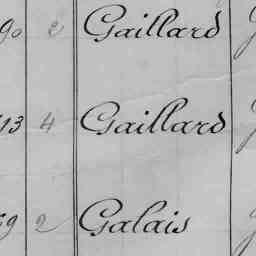 90 2 Gaillard
13 4 Gaillard
69 2 Galais